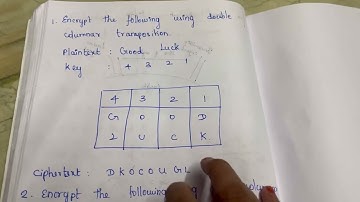 1. Encrypt the following using double
columnar transposition.
Plaintext : Good Luck
Key : 4 3 2 1
4 3 2 1
G O O D
L U C K
Ciphertext : D K O C O U G L
2. Encrypt the following